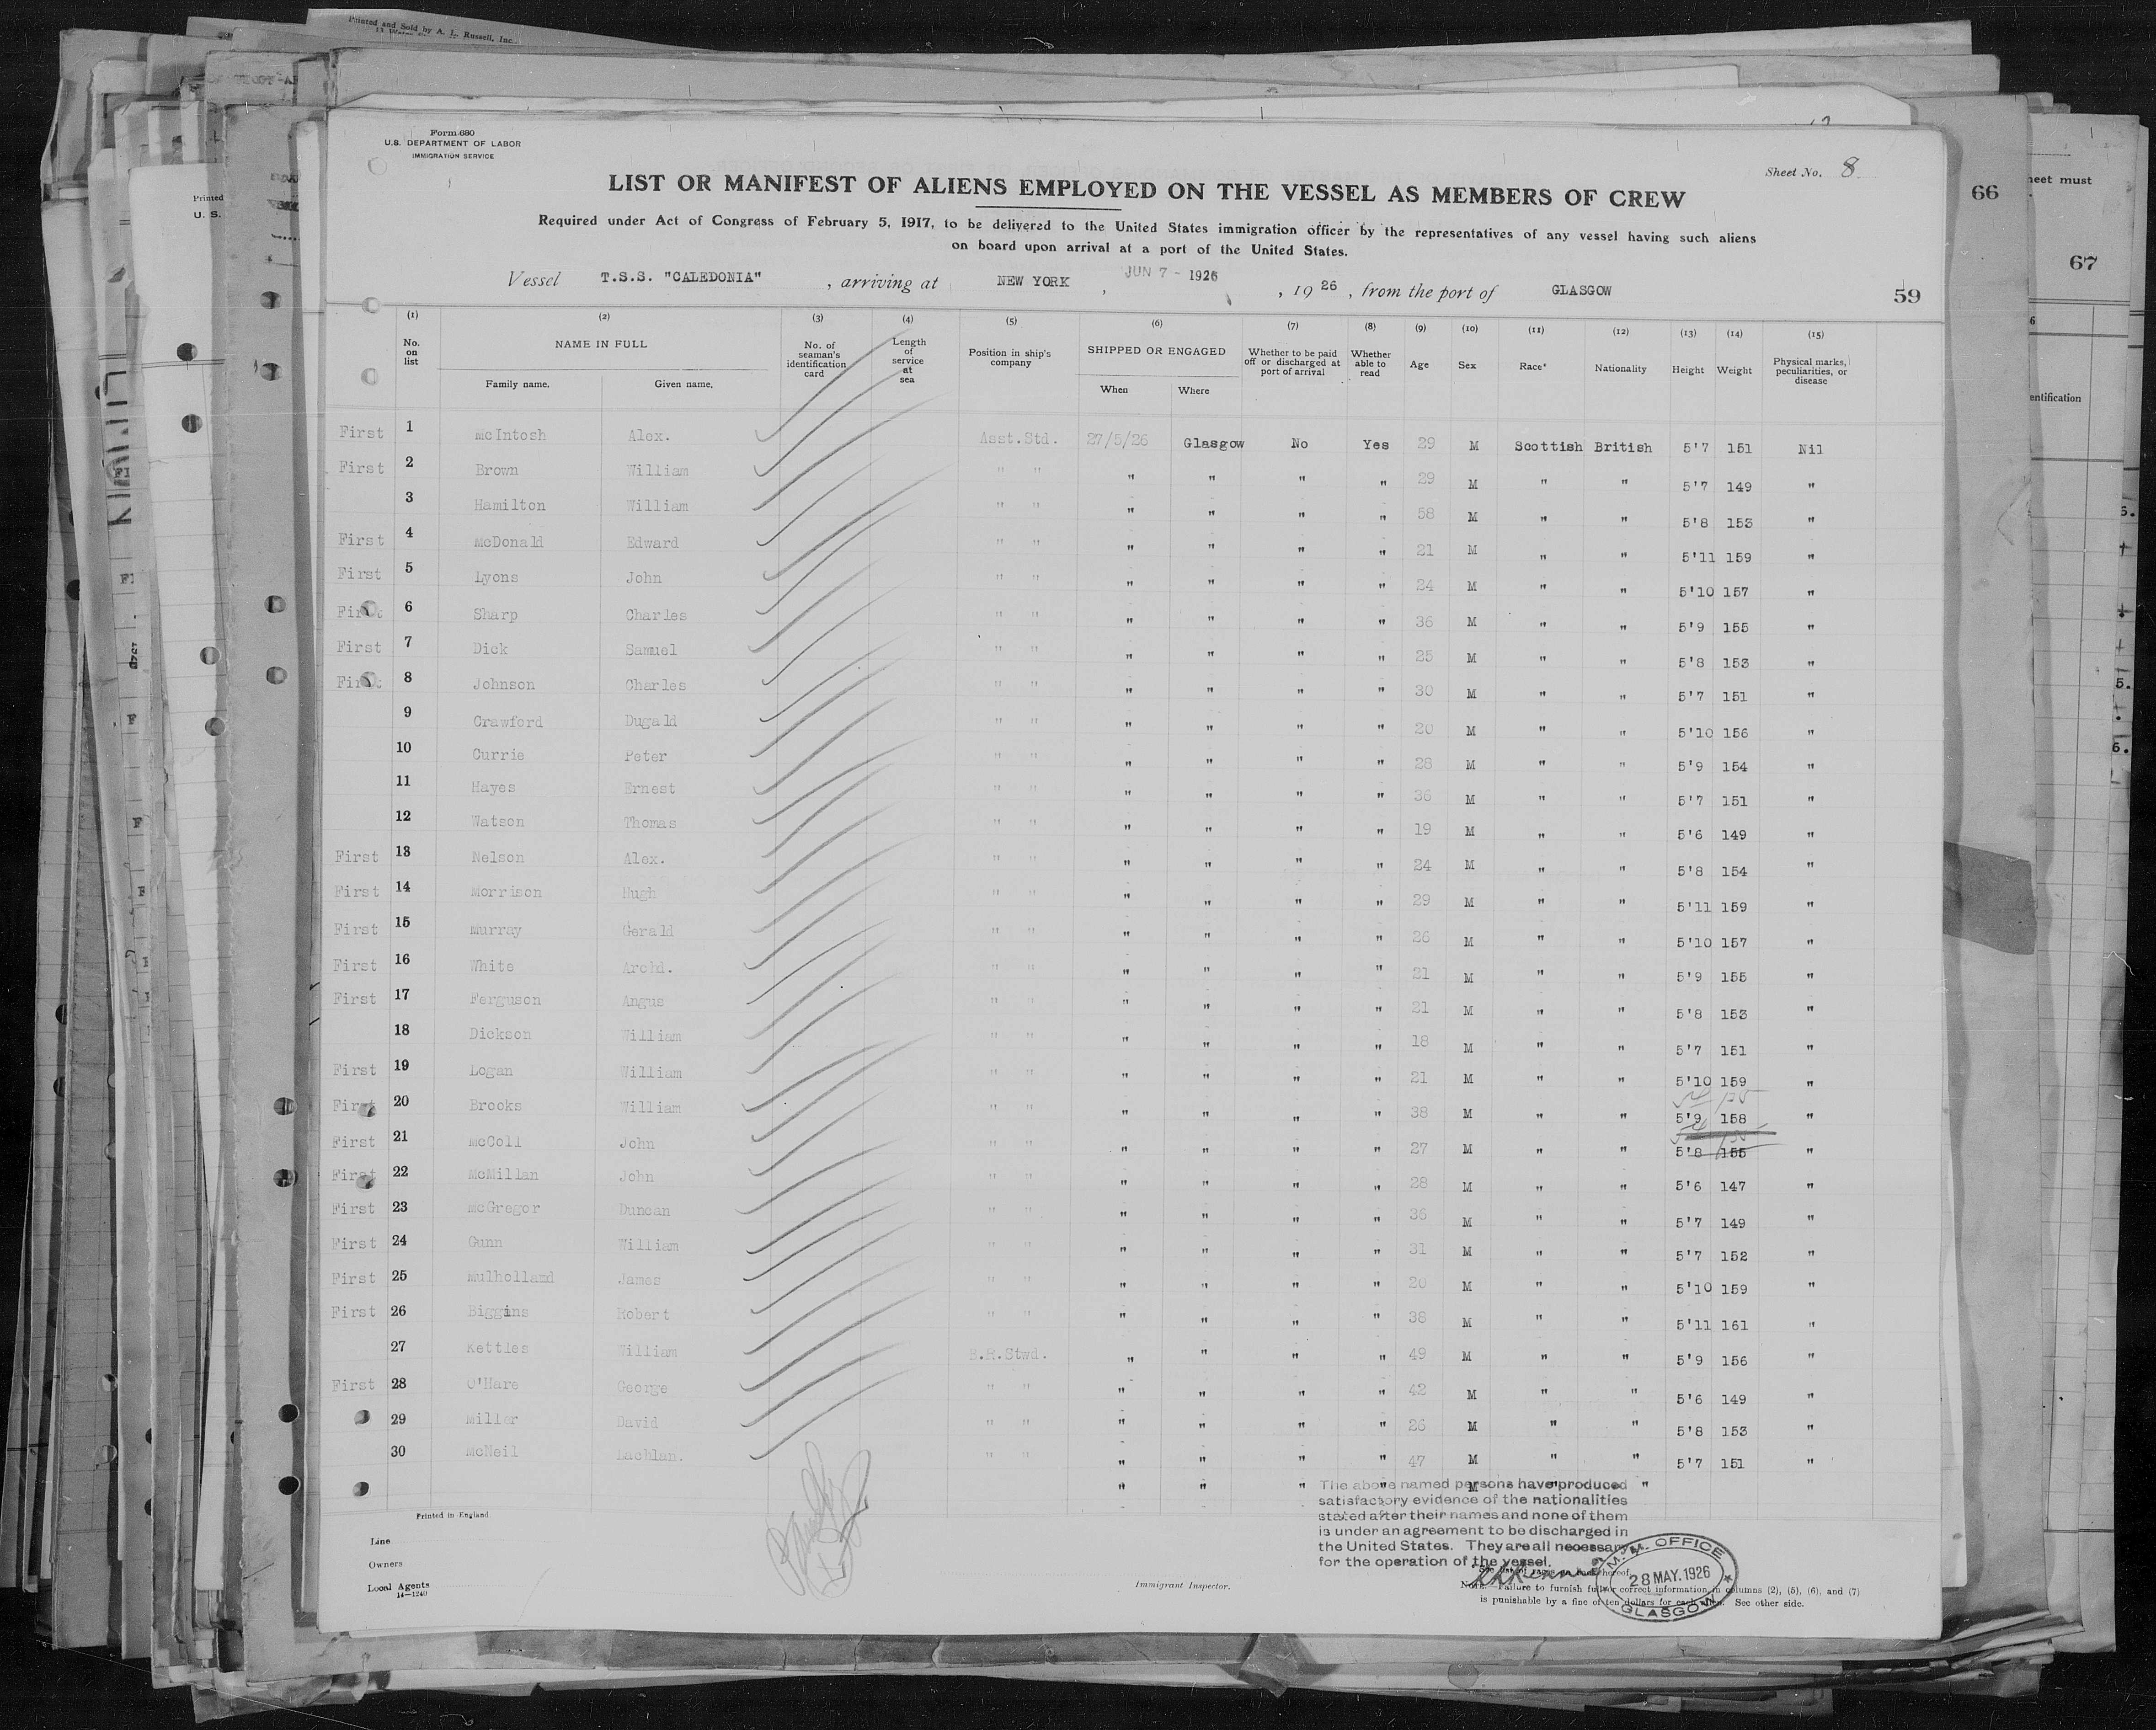 Printed and Sold by A. L. Russell, Inc.
Printed
U. S.
Form 680
U.S. DEPARTMENT OF LABOR
IMMIGRATION SERVICE
Sheet No. 8
66
67
LIST OR MANIFEST OF ALIENS EMPLOYED ON THE VESSEL AS MEMBERS OF CREW
Required under Act of Congress of February 5, 1917, to be delivered to the United States immigration officer by the representatives of any vessel having such aliens
on board upon arrival at a port of the United States.
Vessel T.S.S. "CALEDONIA" , arriving at NEW YORK , JUN 7 - 1926 , 19 26 , from the port of GLASGOW
59
(1) (2) (3) (4) (5) (6) (7) (8) (9) (10) (11) (12) (13) (14) (15)
No. on list NAME IN FULL Family name. Given name. No. of seaman's identification card Length of service at sea Position in ship's company SHIPPED OR ENGAGED When Where Whether to be paid off or discharged at port of arrival Whether able to read Age Sex Race* Nationality Height Weight Physical marks, peculiarities, or disease
First 1 McIntosh Alex. Asst.Std. 27/5/26 Glasgow No Yes 29 M Scottish British 5'7 151 Nil
First 2 Brown William " " " " " " 29 M " " 5'7 149 "
3 Hamilton William " " " " " " 58 M " " 5'8 153 "
First 4 McDonald Edward " " " " " " 21 M " " 5'11 159 "
First 5 Lyons John " " " " " " 24 M " " 5'10 157 "
First 6 Sharp Charles " " " " " " 36 M " " 5'9 155 "
First 7 Dick Samuel " " " " " " 25 M " " 5'8 153 "
First 8 Johnson Charles " " " " " " 30 M " " 5'7 151 "
9 Crawford Dugald " " " " " " 20 M " " 5'10 156 "
10 Currie Peter " " " " " " 28 M " " 5'9 154 "
11 Hayes Ernest " " " " " " 36 M " " 5'7 151 "
12 Watson Thomas " " " " " " 19 M " " 5'6 149 "
First 13 Nelson Alex. " " " " " " 24 M " " 5'8 154 "
First 14 Morrison Hugh " " " " " " 29 M " " 5'11 159 "
First 15 Murray Gerald " " " " " " 26 M " " 5'10 157 "
First 16 White Archd. " " " " " " 21 M " " 5'9 155 "
First 17 Ferguson Angus " " " " " " 21 M " " 5'8 153 "
18 Dickson William " " " " " " 18 M " " 5'7 151 "
First 19 Logan William " " " " " " 21 M " " 5'10 159 "
First 20 Brooks William " " " " " " 38 M " " 5'9 158 "
First 21 McColl John " " " " " " 27 M " " 5'8 155 "
First 22 McMillan John " " " " " " 28 M " " 5'6 147 "
First 23 McGregor Duncan " " " " " " 36 M " " 5'7 149 "
First 24 Gunn William " " " " " " 31 M " " 5'7 152 "
First 25 Mulholland James " " " " " " 20 M " " 5'10 159 "
First 26 Biggins Robert " " " " " " 38 M " " 5'11 161 "
27 Kettles William B.R.Stwd. " " " " 49 M " " 5'9 156 "
First 28 O'Hare George " " " " " " 42 M " " 5'6 149 "
29 Miller David " " " " " " 26 M " " 5'8 153 "
30 McNeil Lachlan. " " " " " " 47 M " " 5'7 151 "
" " " " M " "
The above named persons have produced
satisfactory evidence of the nationalities
stated after their names and none of them
is under an agreement to be discharged in
the United States. They are all necessary
for the operation of the vessel.
Printed in England
Line
Owners
Local Agents
14—1240
Immigrant Inspector.
M.M. OFFICE
28 MAY. 1926
GLASGOW
Note.—Failure to furnish full or correct information in columns (2), (5), (6), and (7)
is punishable by a fine of ten dollars for each alien. See other side.